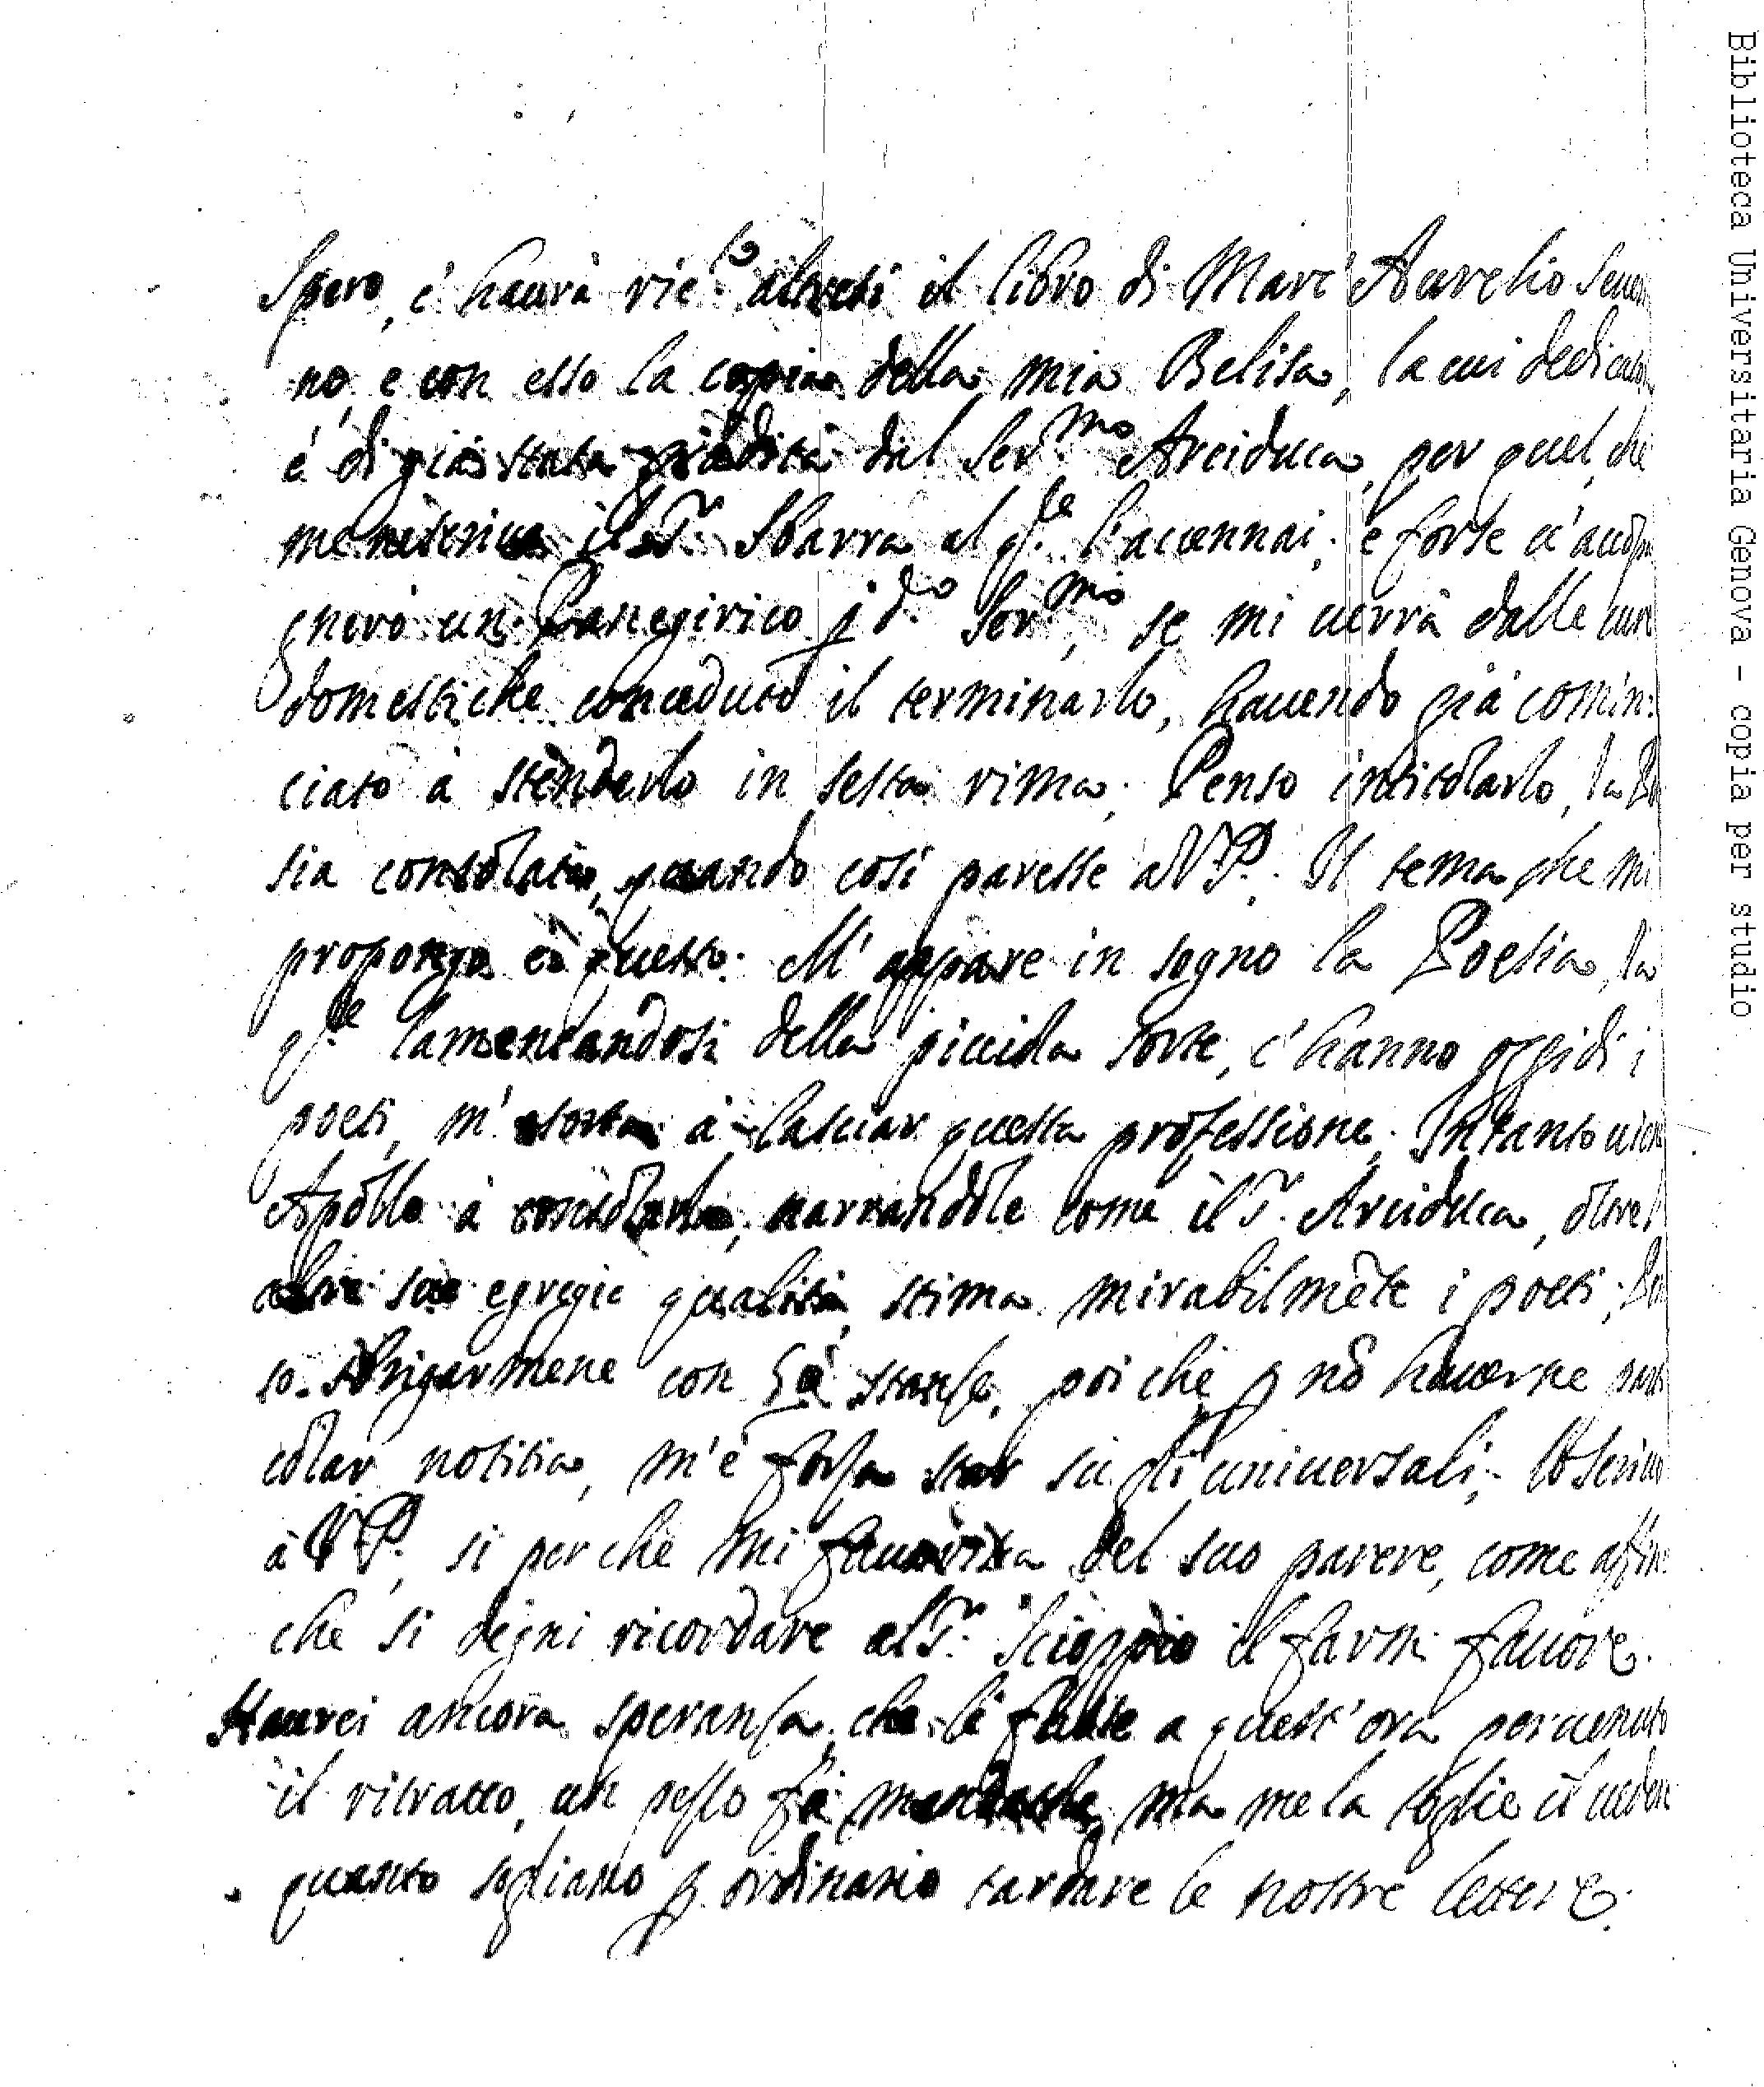 Spero, c'haurà ric.to altresi il libro di Marc'Aurelio Seue
no, e con esso la copia della mia Belisa, la cui dedicato
é di già stata gradita dal Ser.mo Arciduca, per quel, che
me ne scriue il S.r Sbarra al q.le l'accennai; e forse u'accōpa
gnerò un Panegirico p d.o Ser.mo, se mi uerrà dalle cure
domestiche conceduto il terminarlo, hauendo già comin:
ciato à stenderlo in sesta rima. Penso intitolarlo, la Po
sia consolata, quando così paresse à V.P. Il tema che mi
propongo è questo. M'appare in sogno la Poesia, la
q.le lamentandosi della picciola sorte, c'hanno oggidì i
poeti, m'esorta à lasciar questa professione. Intanto uien
Apollo à consolarla, narrandole come il S.r Arciduca, oltre l'
altre sue egregie qualità, stima mirabilmēte i poeti; Pen
so sbrigarmene con 50 stanze, poi che p nō hauerne parti
colar notitia, m'è forza star su gli uniuersali; Lo scriuo
à V.P. si perche mi fauorisca del suo parere, come affin
che si degni ricordare al S.r Scioppio il farmi fauore.
Haurei ancora speranza, che le fusse a quest'ora peruenuto
il ritratto, un pezzo fà mandatole, ma me la toglie il uedere
quanto sogliano p ordinario tardare le nostre lettere.
Biblioteca Universitaria Genova - copia per studio